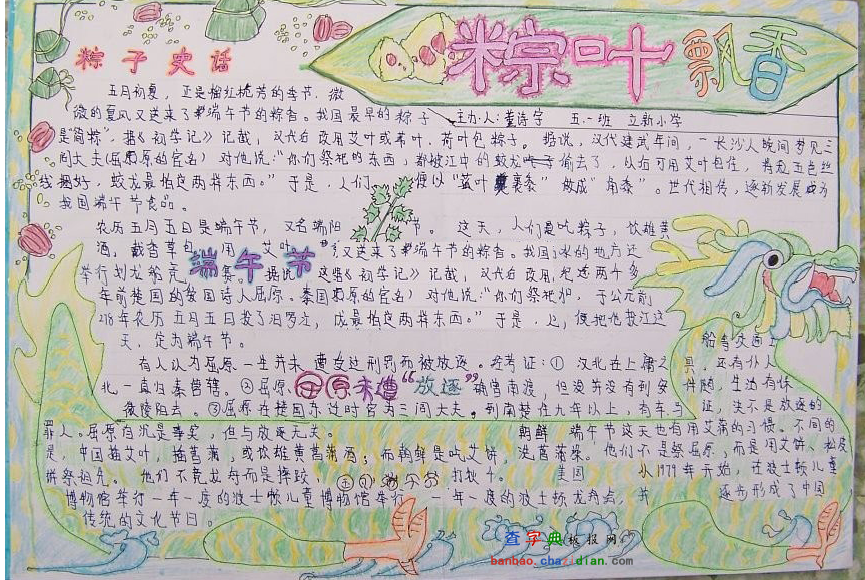 粽叶飘香
粽子史话
五月初夏，正是榴红桃芳的季节，微
微的夏风又送来了端午节的粽香。我国最早的粽子
主办人：董诗宇 五.一班 立新小学
是"筒粽"，据《初学记》记载，汉代后改用艾叶或苇叶、荷叶包粽子。据说，汉代建武年间，一长沙人晚间梦见三
闾大夫(屈原的官名)对他说："你们祭祀的东西，都被江中的蛟龙偷去了，以后可用艾叶包住，将五色丝
线捆好，蛟龙最怕这两样东西。"于是，人们便以"菰叶裹黍"做成"角黍"。世代相传，逐渐发展成为
我国端午节食品。
农历五月五日是端午节，又名端阳节。这天，人们是吃粽子，饮雄黄
酒，戴香草包，用艾叶 又送来了端午节的粽香。我国的地方还
举行划龙船竞赛。据说 《初学记》记载，汉代后改用 两千多
端午节
年前楚国的爱国诗人屈原。 原的官名)对他说："你们祭祀 于公元前
278年农历五月五日投了汨罗江， 最怕这两样东西。"于是， 便把他投江这
天，定为端午节。
船 交通工
有人认为屈原一生并未遭受过刑罚而被放逐。经考证：①汉北在上庸之 具，还有仆人
北一直归秦管辖。②屈原 确曾南渡，但没并没有到安 伴随，生活有保
屈原未遭"放逐"
徽陵阳去。③屈原在楚国东迁时官为三闾大夫，到南楚住九年以上，有车与 证，决不是放逐的
罪人。屈原自沉是事实，但与放逐无关。 朝鲜 端午节这天也有用艾蒲的习惯。不同的
是，中国插艾叶、插菖蒲，或饮雄黄菖蒲酒；而朝鲜是吃艾饼，洗菖蒲菜。他们不是祭屈原，而是用艾饼、松皮
饼祭祖先。他们不竞龙舟而是摔跤， 打秋千。 美国 从1979年开始，该波士顿儿童
博物馆举行一年一度的波士顿儿童博物馆举行 一年一度的波士顿龙舟点，并 逐步形成了中国
传统的文化节日。
查字典 板报网
banbao.chazidian.com